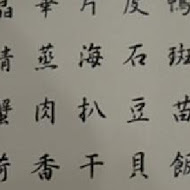 晶華片皮鴨
清蒸海石斑
蟹肉扒豆苗
荷香干貝飯